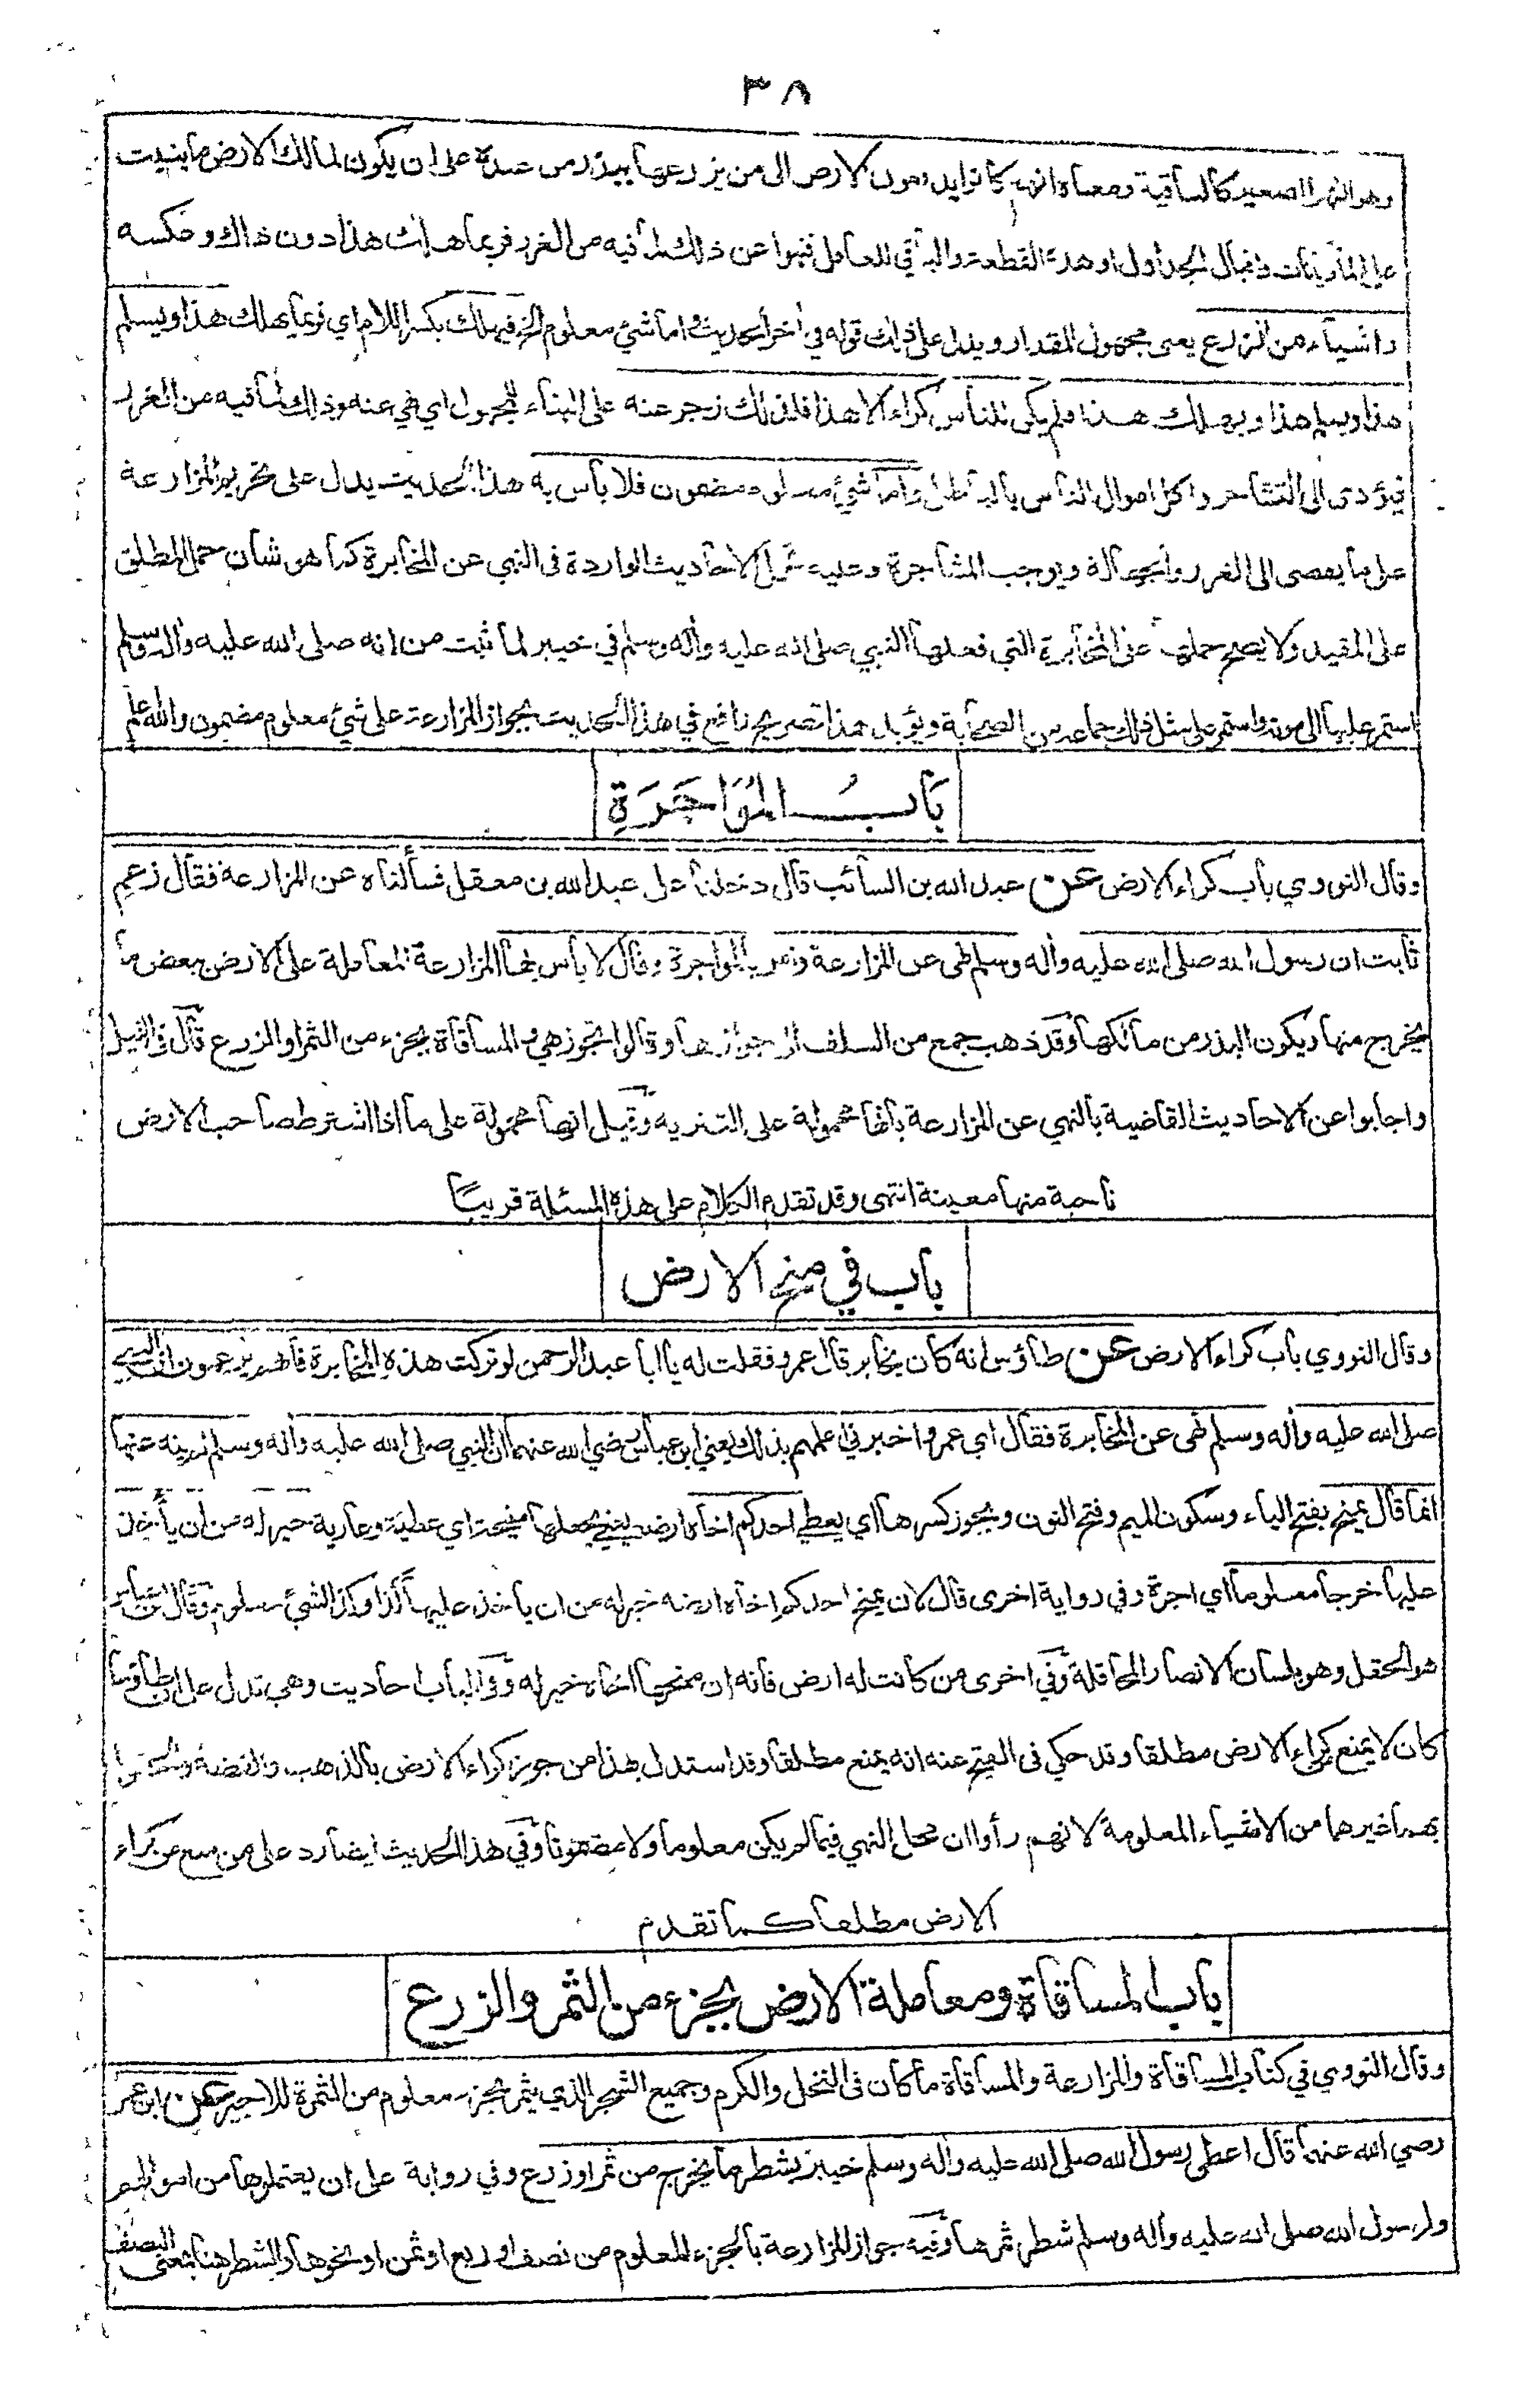 ٣٨
وهو النهر الصغير كالساقية ومعناه انهم كانوا يدفعون الارض الى من يزرعها ببذر من عنده على ان يكون لمالك الارض ما ينبت
على الماذيانات واقبال الجداول او هذه القطعة والباقي للعامل فنهوا عن ذلك لما فيه من الغرر فربما هلك هذا دون ذاك وعكسه
واشياء من الزرع يعني مجهول المقدار ويدل على ذلك قوله في اخر الحديث واما شئ معلوم الخ فيهلك بكسر اللام اي فربما يهلك هذا ويسلم
هذا ويسلم هذا ويهلك هذا فلم يكن للناس كراء الا هذا فلذلك زجر عنه على البناء للمجهول اي نهي عنه وذلك لما فيه من الغرر
فيؤدى الى التشاجر واكل اموال الناس بالباطل واما شئ معلوم مضمون فلا بأس به هذا الحديث يدل على تحريم المزارعة
على ما يفضى الى الغرر والجهالة ويوجب المشاجرة وعليه تحمل الاحاديث الواردة فى النهي عن المخابرة كما هو شأن حمل المطلق
على المقيد ولا يصح حملها على المخابرة التي فعلها النبي صلى الله عليه وأله وسلم في خيبر لما ثبت من انه صلى الله عليه وأله وسلم
استمر عليها الى موته واستمر على مثل ذلك جماعة من الصحابة ويؤيد هذا تصريح رافع في هذا الحديث بجواز المزارعة على شئ معلوم مضمون والله اعلم
بَابُ المُؤَاجَرَةِ
وقال النووي باب كراء الارض عن عبد الله بن السائب قال دخلنا على عبد الله بن معقل فسألناه عن المزارعة فقال زعم
ثابت ان رسول الله صلى الله عليه وأله وسلم نهى عن المزارعة وامر بالمواجرة وقال لا بأس بها المزارعة المعاملة على الارض ببعض ما
يخرج منها ويكون البذر من مالكها وقد ذهب جمع من السلف الى جوازها وقالوا تجوز هي والمساقاة بجزء من الثمر او الزرع قال فى النيل
واجابوا عن الاحاديث القاضية بالنهي عن المزارعة بانها محمولة على التنزيه وقيل انها محمولة على ما اذا اشترط صاحب الارض
ناحية منها معينة انتهى وقد تقدم الكلام على هذه المسئلة قريبًا
باب في منح الارض
وقال النووي باب كراء الارض عن طاؤس انه كان يخابر قال عمرو فقلت له يا ابا عبد الرحمن لو تركت هذه المخابرة فانهم يزعمون ان النبي
صلى الله عليه وأله وسلم نهى عن المخابرة فقال اي عمرو اخبرني اعلمهم بذلك يعني ابن عباس رضي الله عنهما ان النبي صلى الله عليه وأله وسلم لم ينه عنها
انما قال يمنح بفتح الياء وسكون الميم وفتح النون ويجوز كسرها اي يعطي احدكم اخاه ارضه يعني يجعلها منيحة اي عطية وعارية خير له من ان يأخذ
عليها خرجا معلوما اي اجرة وفي رواية اخرى قال لان يمنح احدكم اخاه ارضه خير له من ان يأخذ عليها كذا وكذا الشئ معلوم وقال ابن عباس
هو الحقل وهو بلسان الانصار المحاقلة وفي اخرى من كانت له ارض فانه ان منحها اخاه خير له وفى الباب احاديث وهي تدل على ان طاؤسا
كان لا يمنع كراء الارض مطلقا وقد حكي فى الفتح عنه انه يمنع مطلقا وقد استدل بهذا من جوز كراء الارض بالذهب والفضة والحقوا
بهما غيرهما من الاشياء المعلومة لانهم رأوا ان محل النهي فيما لم يكن معلوما ولا مضمونا وفي هذا الحديث ايضا رد على من منع من كراء
الارض مطلقا كما تقدم
باب المساقاة ومعاملة الارض بجزء من الثمر والزرع
وقال النووي في كتاب المساقاة والمزارعة والمساقاة ما كان فى النخل والكرم وجميع الشجر الذي يثمر بجزء معلوم من الثمرة للاجير عن ابن عمر
رضي الله عنهما قال اعطى رسول الله صلى الله عليه وأله وسلم خيبر بشطر ما يخرج من ثمر او زرع وفي رواية على ان يعتملوها من اموالهم
ولرسول الله صلى الله عليه وأله وسلم شطر ثمرها وفيه جواز المزارعة بالجزء المعلوم من نصف او ربع او ثمن او نحوها والشطر هنا بمعنى النصف